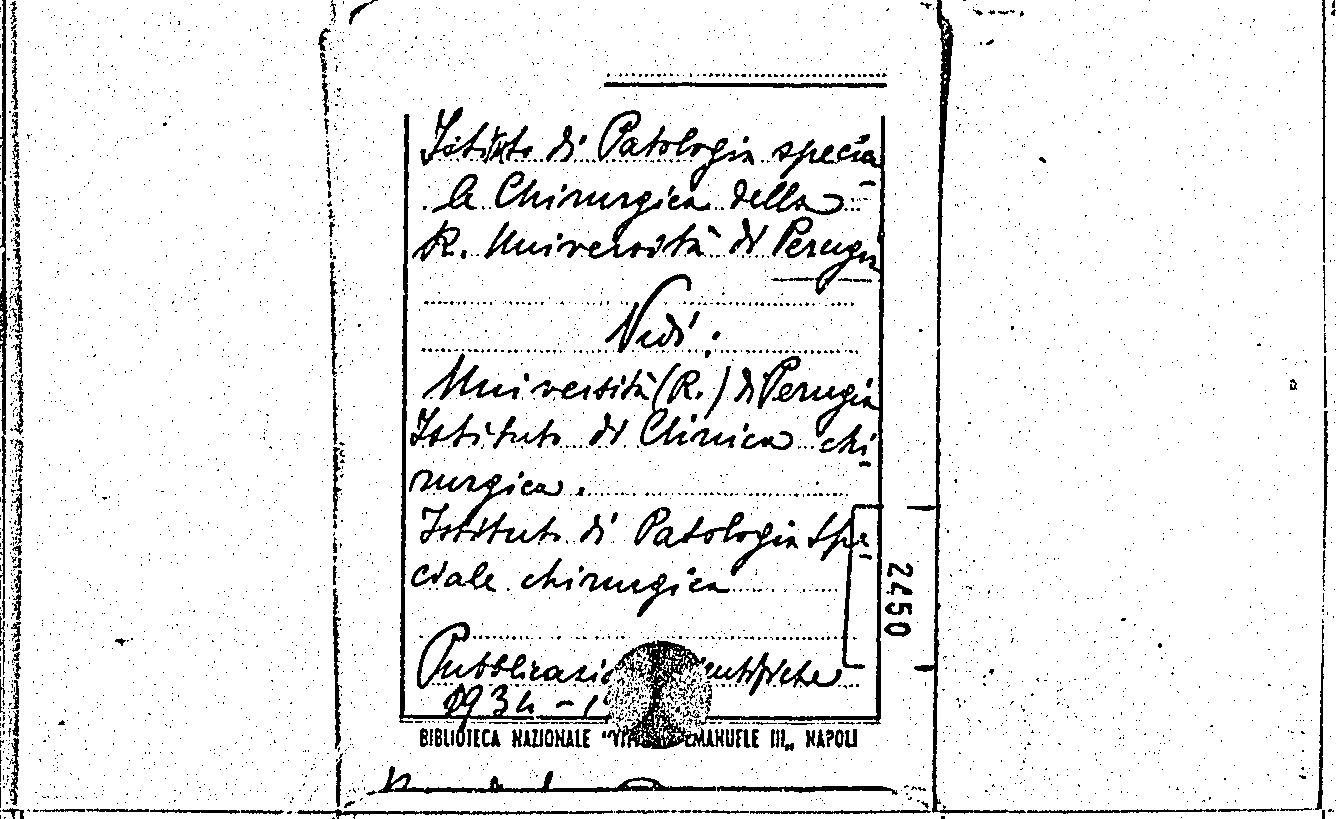 Istituto di Patologia specia-
le Chirurgica della
R. Università di Perugia
Vedi:
Università (R.) di Perugia
Istituto di Clinica chi-
rurgica.
Istituto di Patologia Spe-
ciale chirurgica
2450
Pubblicazioni scientifiche
1934 -
BIBLIOTECA NAZIONALE "VITTORIO EMANUELE III„ NAPOLI